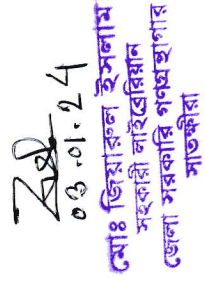 03.01.24
মোঃ জিয়ারুল ইসলাম
সহকারী লাইব্রেরিয়ান
জেলা সরকারি গণগ্রন্থাগার
সাতক্ষীরা